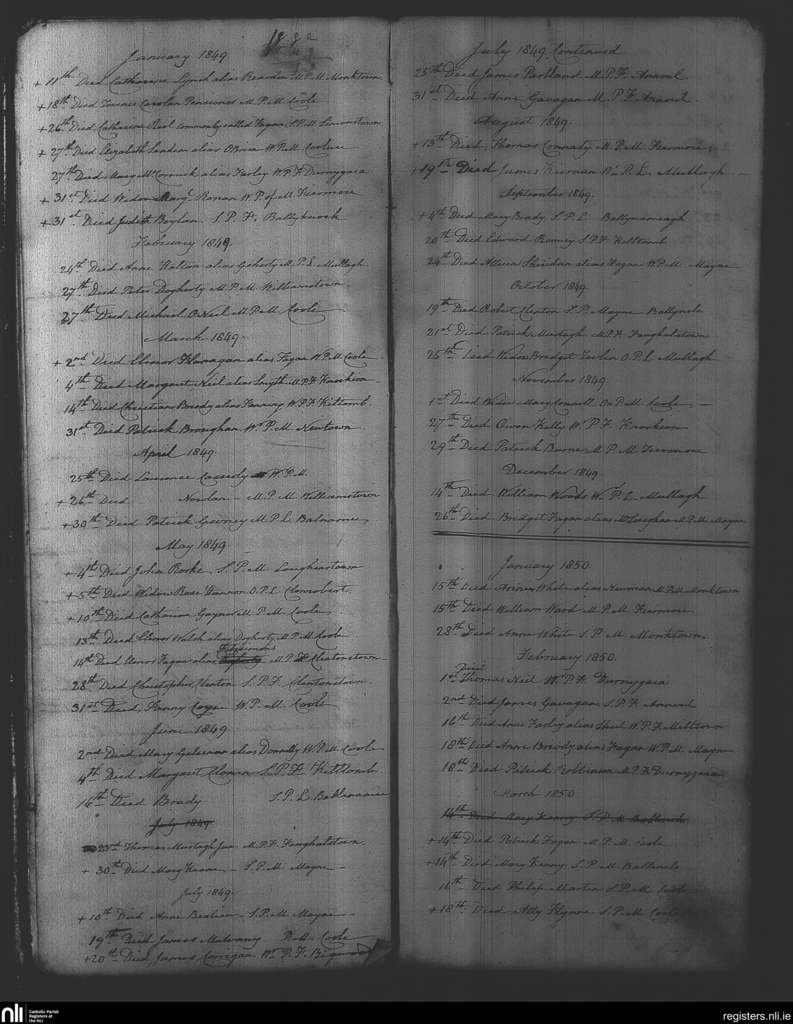 January 1849
+ 11th Died Catharine Lynch alias Reardon M.P.M. Monktown
+ 18th Died Terence Carolan Pensioner M.P.M. Coole
+ 26th Died Catharine Reel commonly called Fagan S.P.M.
+ 27th Died Elizabeth Landen alias OBrien W.P.M. Coolure
27th Died Mary McCormick alias Farley W.P.F. Durnygara
+ 31st Died Widow Mary Ronan W.P. of M. Furmore
+ 31st Died Judith Boylan S.P.F. Ballyknock
February 1849
24th Died Anne Halton alias Goherty M.P.L. Mullagh
27th Died Peter Dogherty M.P.M. Williamstown
27th Died Michael ONeil M.P.M. Coole
March 1849
+ 2nd Died Elenor Flanagan alias Fagan W.P.M. Coole
4th Died Margaret Neil alias Smyth M.P.F. Knockeran
14th Died Christian Brody alias Fanning W.P.F. Kiltomb
31st Died Patrick Broughan W.P.M. Newtown
April 1849
25th Died Laurence Casserly W.P.M.
+ 26th Died Nowlan M.P.M. Williamstown
+ 30th Died Patrick Gowney M.P.L. Balnavine
May 1849
+ 4th Died John Rorke S.P.M.
+ 5th Died Widow Rose Dannon O.P.L. Clonrobert
+ 10th Died Catharine Gaynor M.P.M. Coole
13th Died Elenor Walsh alias Dogherty M.P.M. Coole
Fitzsimons
14th Died Elenor Fagan alias M.P.F. Clintonstown
28th Died Christopher Clinton S.P.F. Clintonstown
31st Died Fanny Coyne W.P.M. Coole
June 1849
2nd Died Mary alias Donnelly W.P.M. Coole
4th Died Margaret Clonan S.P.F. Kiltomb
16th Died Brady S.P.L. Balnavine
July 1849
23rd Thomas Murtagh Jun. M.P.F. Faughalstown
+ 30th Died Mary Keane S.P.M. Mayne
July 1849
+ 10th Died Anne S.P.M. Mayne
19th Died James Mulvany P.M. Coole
+ 20th Died James Corrigan W.P.F.
July 1849 Continued
25th Died James Partland M.P.F. Aravil
31st Died Anne Gavagan M.P.F. Aravil
August 1849
+ 13th Died Thomas Conrady M.P.M. Furmore
+ 19th Died James Kiernan W.P.L. Mullagh
September 1849
+ 4th Died Mary Brady S.P.L. Ballynameagh
20th Died Edward Ranney S.P.F. Kiltomb
24th Died Alicia Sheridan alias Fagan W.P.M. Mayne
October 1849
19th Died Robert Clinton S.P. Mayne Ballynola
21st Died Patrick Murtagh M.P.F. Faughalstown
25th Died Widow Bridget Farlin O.P.L. Mullagh
November 1849
1st Died Widow Mary Connell O.P.M. Coole
27th Died Owen Kelly W.P.F. Knockeran
29th Died Patrick Burne M.P.M. Furmore
December 1849
14th Died William Woods W.P.L. Mullagh
26th Died Bridget Fagan alias McLoughan M.P.M. Mayne
January 1850
15th Died Anne White alias Newman M.P.M. Monktown
15th Died William Ward M.P.M. Furmore
28th Died Anne White S.P.M. Monktown
February 1850
Died
1st Thomas Neil W.P.F. Durnygara
2nd Died James Gavagan S.P.F.
16th Died Anne Farley alias W.P.F. Milltown
18th Died Anne Brody alias Fagan W.P.M. Mayne
18th Died Patrick M.P.F. Durnygara
March 1850
14th Died Mary Kenny S.P.M.
+ 14th Died Patrick Fagan M.P.M. Coole
+ 14th Died Mary Kenny S.P.M. Ballinola
16th Died Philip Martin S.P.M. Coole
+ 18th Died Ally Flynn S.P.M. Coole
nli
Catholic Parish
Registers at
the NLI
registers.nli.ie